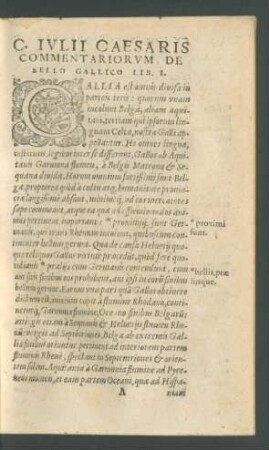 C. IVLII CAESARIS
COMMENTARIORVM DE
BELLO GALLICO LIB. I.
GALLIA est omnis diuisa in
partes tres: quarum vnam
incolunt Belgæ, aliam Aqui-
tani, tertiam qui ipsorum lin-
gua Celtæ, nostra Galli ap-
pellantur. Hi omnes lingua,
institutis, legibus inter se differunt. Gallos ab Aqui-
tanis Garumna flumen, à Belgis Matrona & Se-
quana diuidit. Horum omnium fortissimi sunt Bel-
gæ, propterea quòd à cultu atq; humanitate prouin-
ciæ longissimè absunt, minimeq; ad eos mercatores
sæpe commeant, atque ea quæ ad effœminandos ani-
mos pertinent, important: * proximiq; sunt Ger-
manis, qui trans Rhenum incolunt, quibuscum conti-
nenter bellum gerunt. Qua de causa Heluetij quo-
que reliquos Gallos virtute præcedunt, quòd ferè quo-
tidianis * prælijs cum Germanis contendunt, cum
aut suis finibus eos prohibent, aut ipsi in eorum finibus
bellum gerunt. Eorum vna pars quã Gallos obtinere
dictum est, initium capit à flumine Rhodano, conti-
netur Garumna flumine, Oceano, finibus Belgarũ:
attingit etiam à Sequanis & Heluetijs flumen Rhe-
nũ: vergit ad Septentriones. Belgæ ab extremis Gal-
liæ finibus oriuntur: pertinent ad inferiorem partem
fluminis Rheni, spectant in Septentriones & orien-
tem solem. Aquitania à Garumna flumine ad Pyre-
næos montes, et eam partem Oceani, quæ ad Hispa-
A
* proximi
sunt.
* bellis,